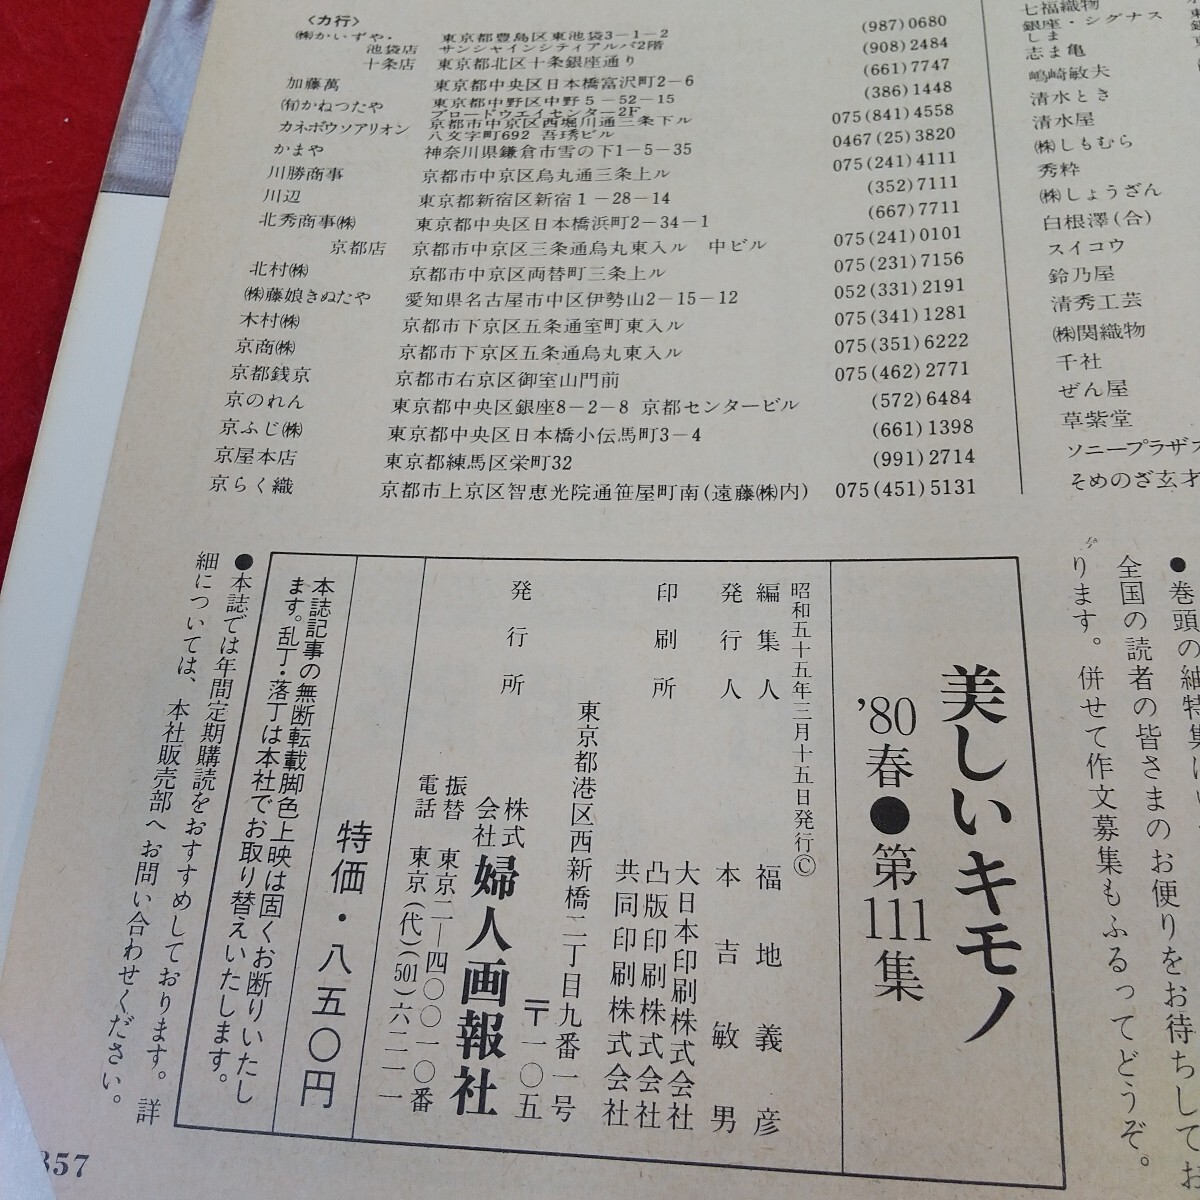 〈カ行〉
㈱かいずや・ 東京都豊島区東池袋3－1－2 (987)0680
池袋店 サンシャインシティアルパ2階 (908)2484
十条店 東京都北区十条銀座通り (661)7747
加藤萬 東京都中央区日本橋富沢町2－6 (386)1448
㈲かねつたや 東京都中野区中野5－52－15
ブロードウエイセンター2F 075(841)4558
カネボウソアリオン 京都市中京区西堀川通三条下ル
八文字町692 吾琇ビル 0467(25)3820
かまや 神奈川県鎌倉市雪の下1－5－35 075(241)4111
川勝商事 京都市中京区烏丸通三条上ル (352)7111
川辺 東京都新宿区新宿1－28－14 (667)7711
北秀商事㈱ 東京都中央区日本橋浜町2－34－1 075(241)0101
京都店 京都市中京区三条通烏丸東入ル 中ビル 075(231)7156
北村㈱ 京都市中京区両替町三条上ル 052(331)2191
㈱藤娘きぬたや 愛知県名古屋市中区伊勢山2－15－12 075(341)1281
木村㈱ 京都市下京区五条通室町東入ル 075(351)6222
京商㈱ 京都市下京区五条通烏丸東入ル 075(462)2771
京都銭京 京都市右京区御室山門前 (572)6484
京のれん 東京都中央区銀座8－2－8 京都センタービル (661)1398
京ふじ㈱ 東京都中央区日本橋小伝馬町3－4 (991)2714
京屋本店 東京都練馬区栄町32
京らく織 京都市上京区智恵光院通笹屋町南(遠藤㈱内) 075(451)5131
七福織物
銀座・シグナス
しま
志ま亀
嶋崎敏夫
清水とき
清水屋
㈱しもむら
秀粋
㈱しょうざん
白根澤(合)
スイコウ
鈴乃屋
清秀工芸
㈱関織物
千社
ぜん屋
草紫堂
ソニープラザ
そめのざ玄才
●巻頭の紬特集
全国の読者の皆さまのお便りをお待ちしてお
ります。併せて作文募集もふるってどうぞ。
美しいキモノ
'80春●第111集
昭和五十五年三月十五日発行©
編集人 福地義彦
発行人 本吉敏男
印刷所 大日本印刷株式会社
凸版印刷株式会社
共同印刷株式会社
東京都港区西新橋二丁目九番一号
〒一〇五
発行所 株式会社 婦人画報社
振替 東京二－四〇〇一〇番
電話 東京(代)(501)六二一一
特価・八五〇円
本誌記事の無断転載脚色上映は固くお断りいたし
ます。乱丁・落丁は本社でお取り替えいたします。
●本誌では年間定期購読をおすすめしております。詳
細については、本社販売部へお問い合わせください。
357